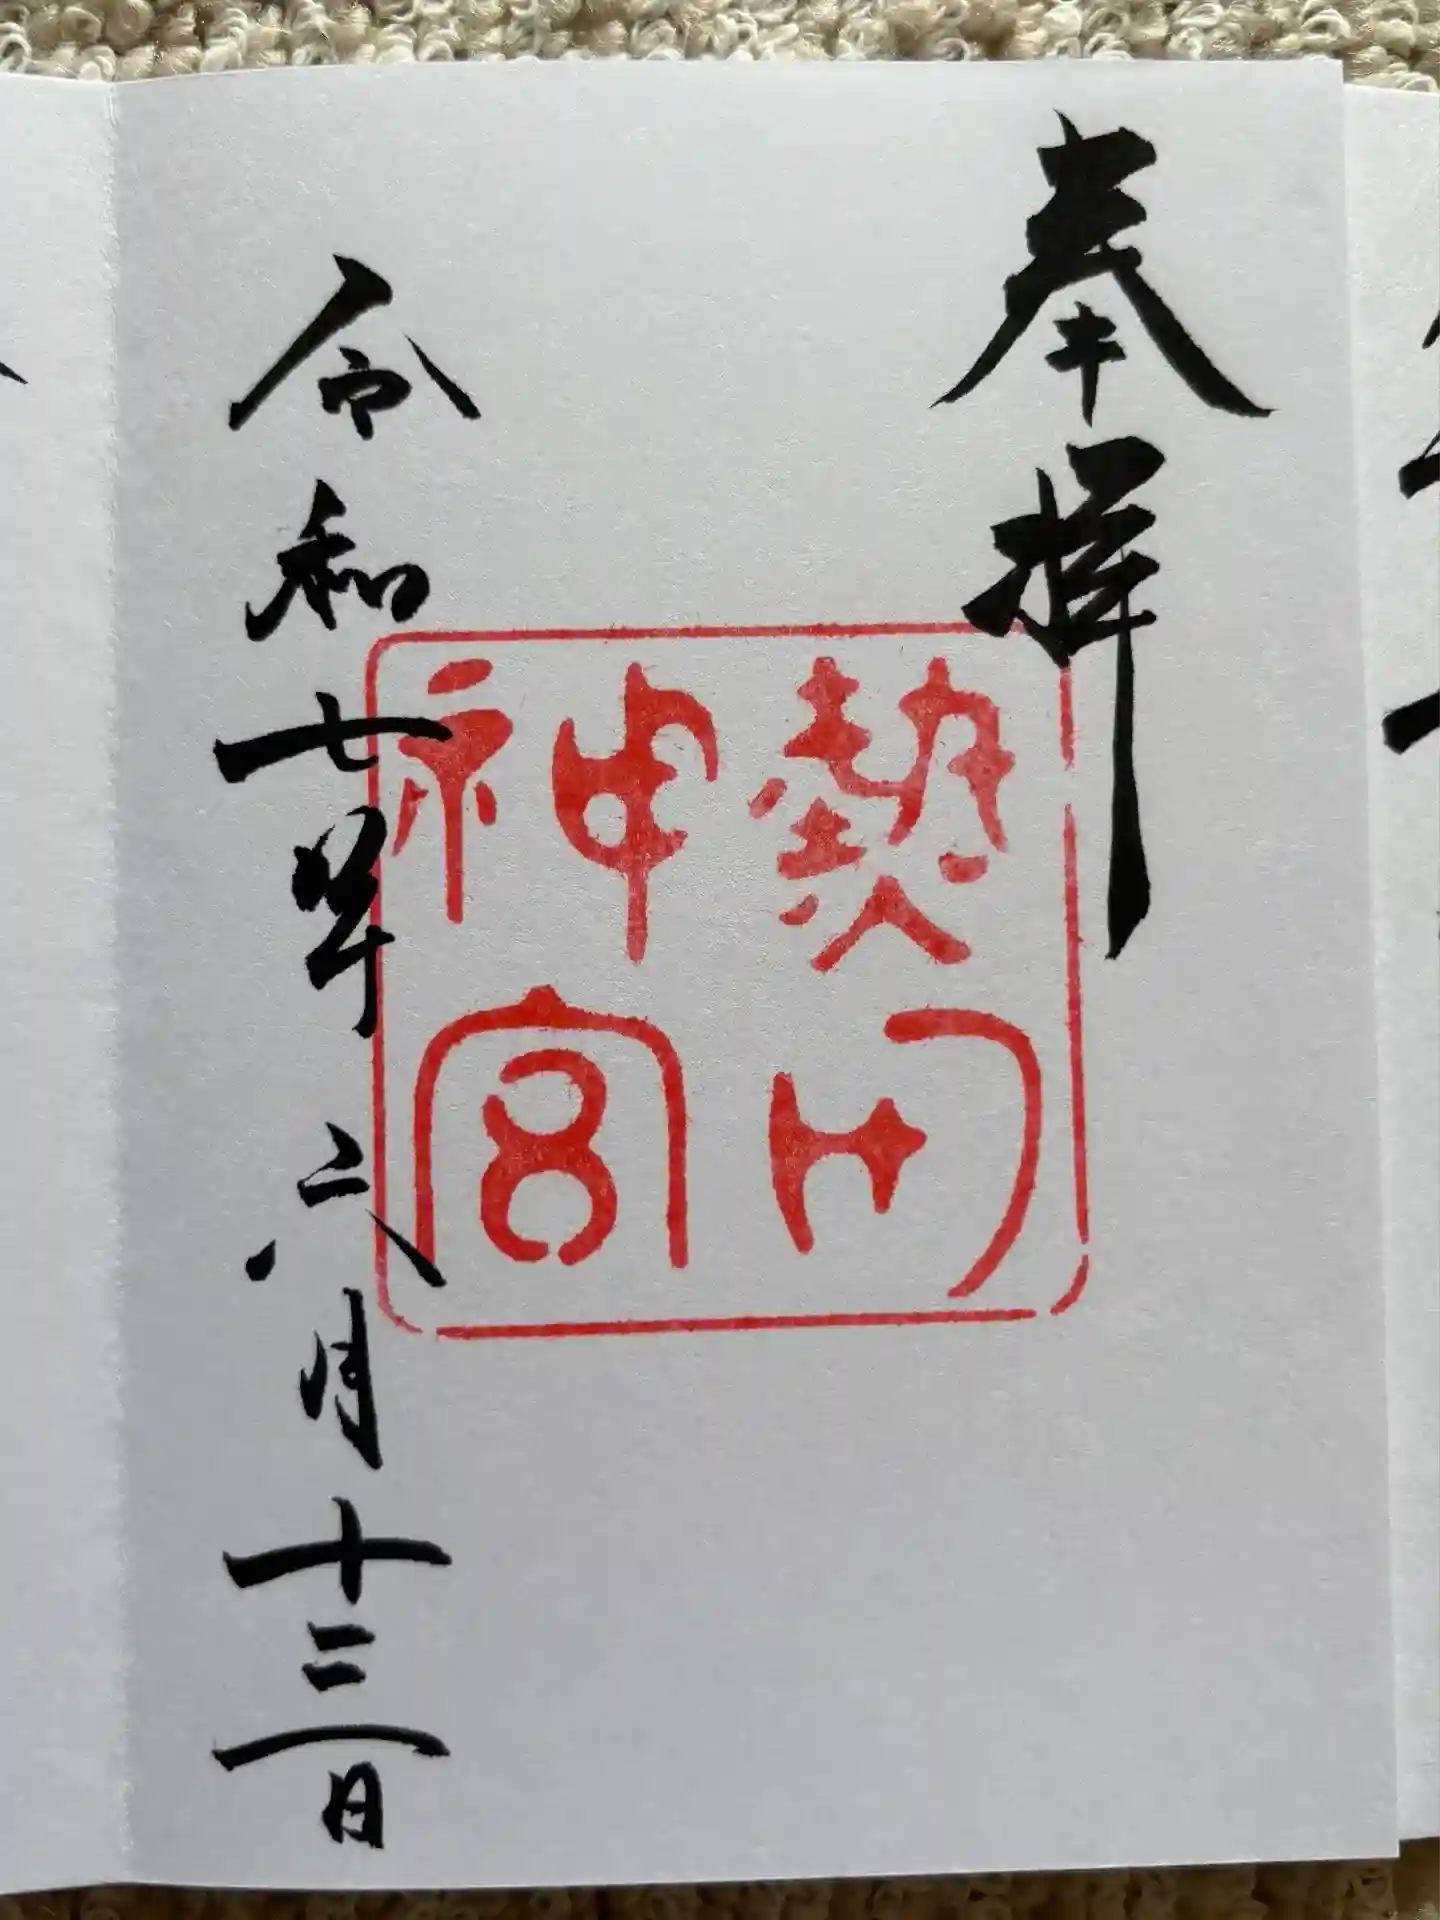 奉拝
熱田
神宮
令和七年 六月十三日